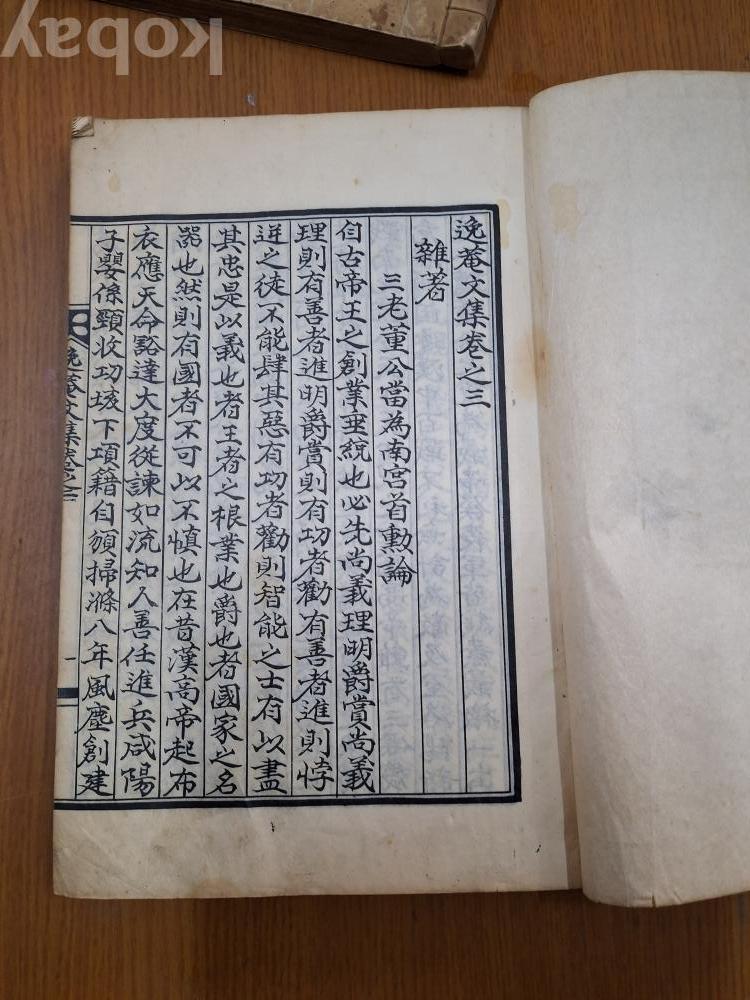 Kobay
逸菴文集卷之三
雜著
三老董公當為南宮首勳論
自古帝王之創業垂統也必先尚義理明爵賞尚義
理則有善者進明爵賞則有功者勸有善者進則悖
逆之徒不能肆其惡有功者勸則智能之士有以盡
其忠是以義也者王者之根業也爵也者國家之名
器也然則有國者不可以不慎也在昔漢高帝起布
衣應天命豁達大度從諫如流知人善任進兵咸陽
子嬰係頸收功垓下項籍自刎掃滌八年風塵創建
逸菴文集卷之三
一